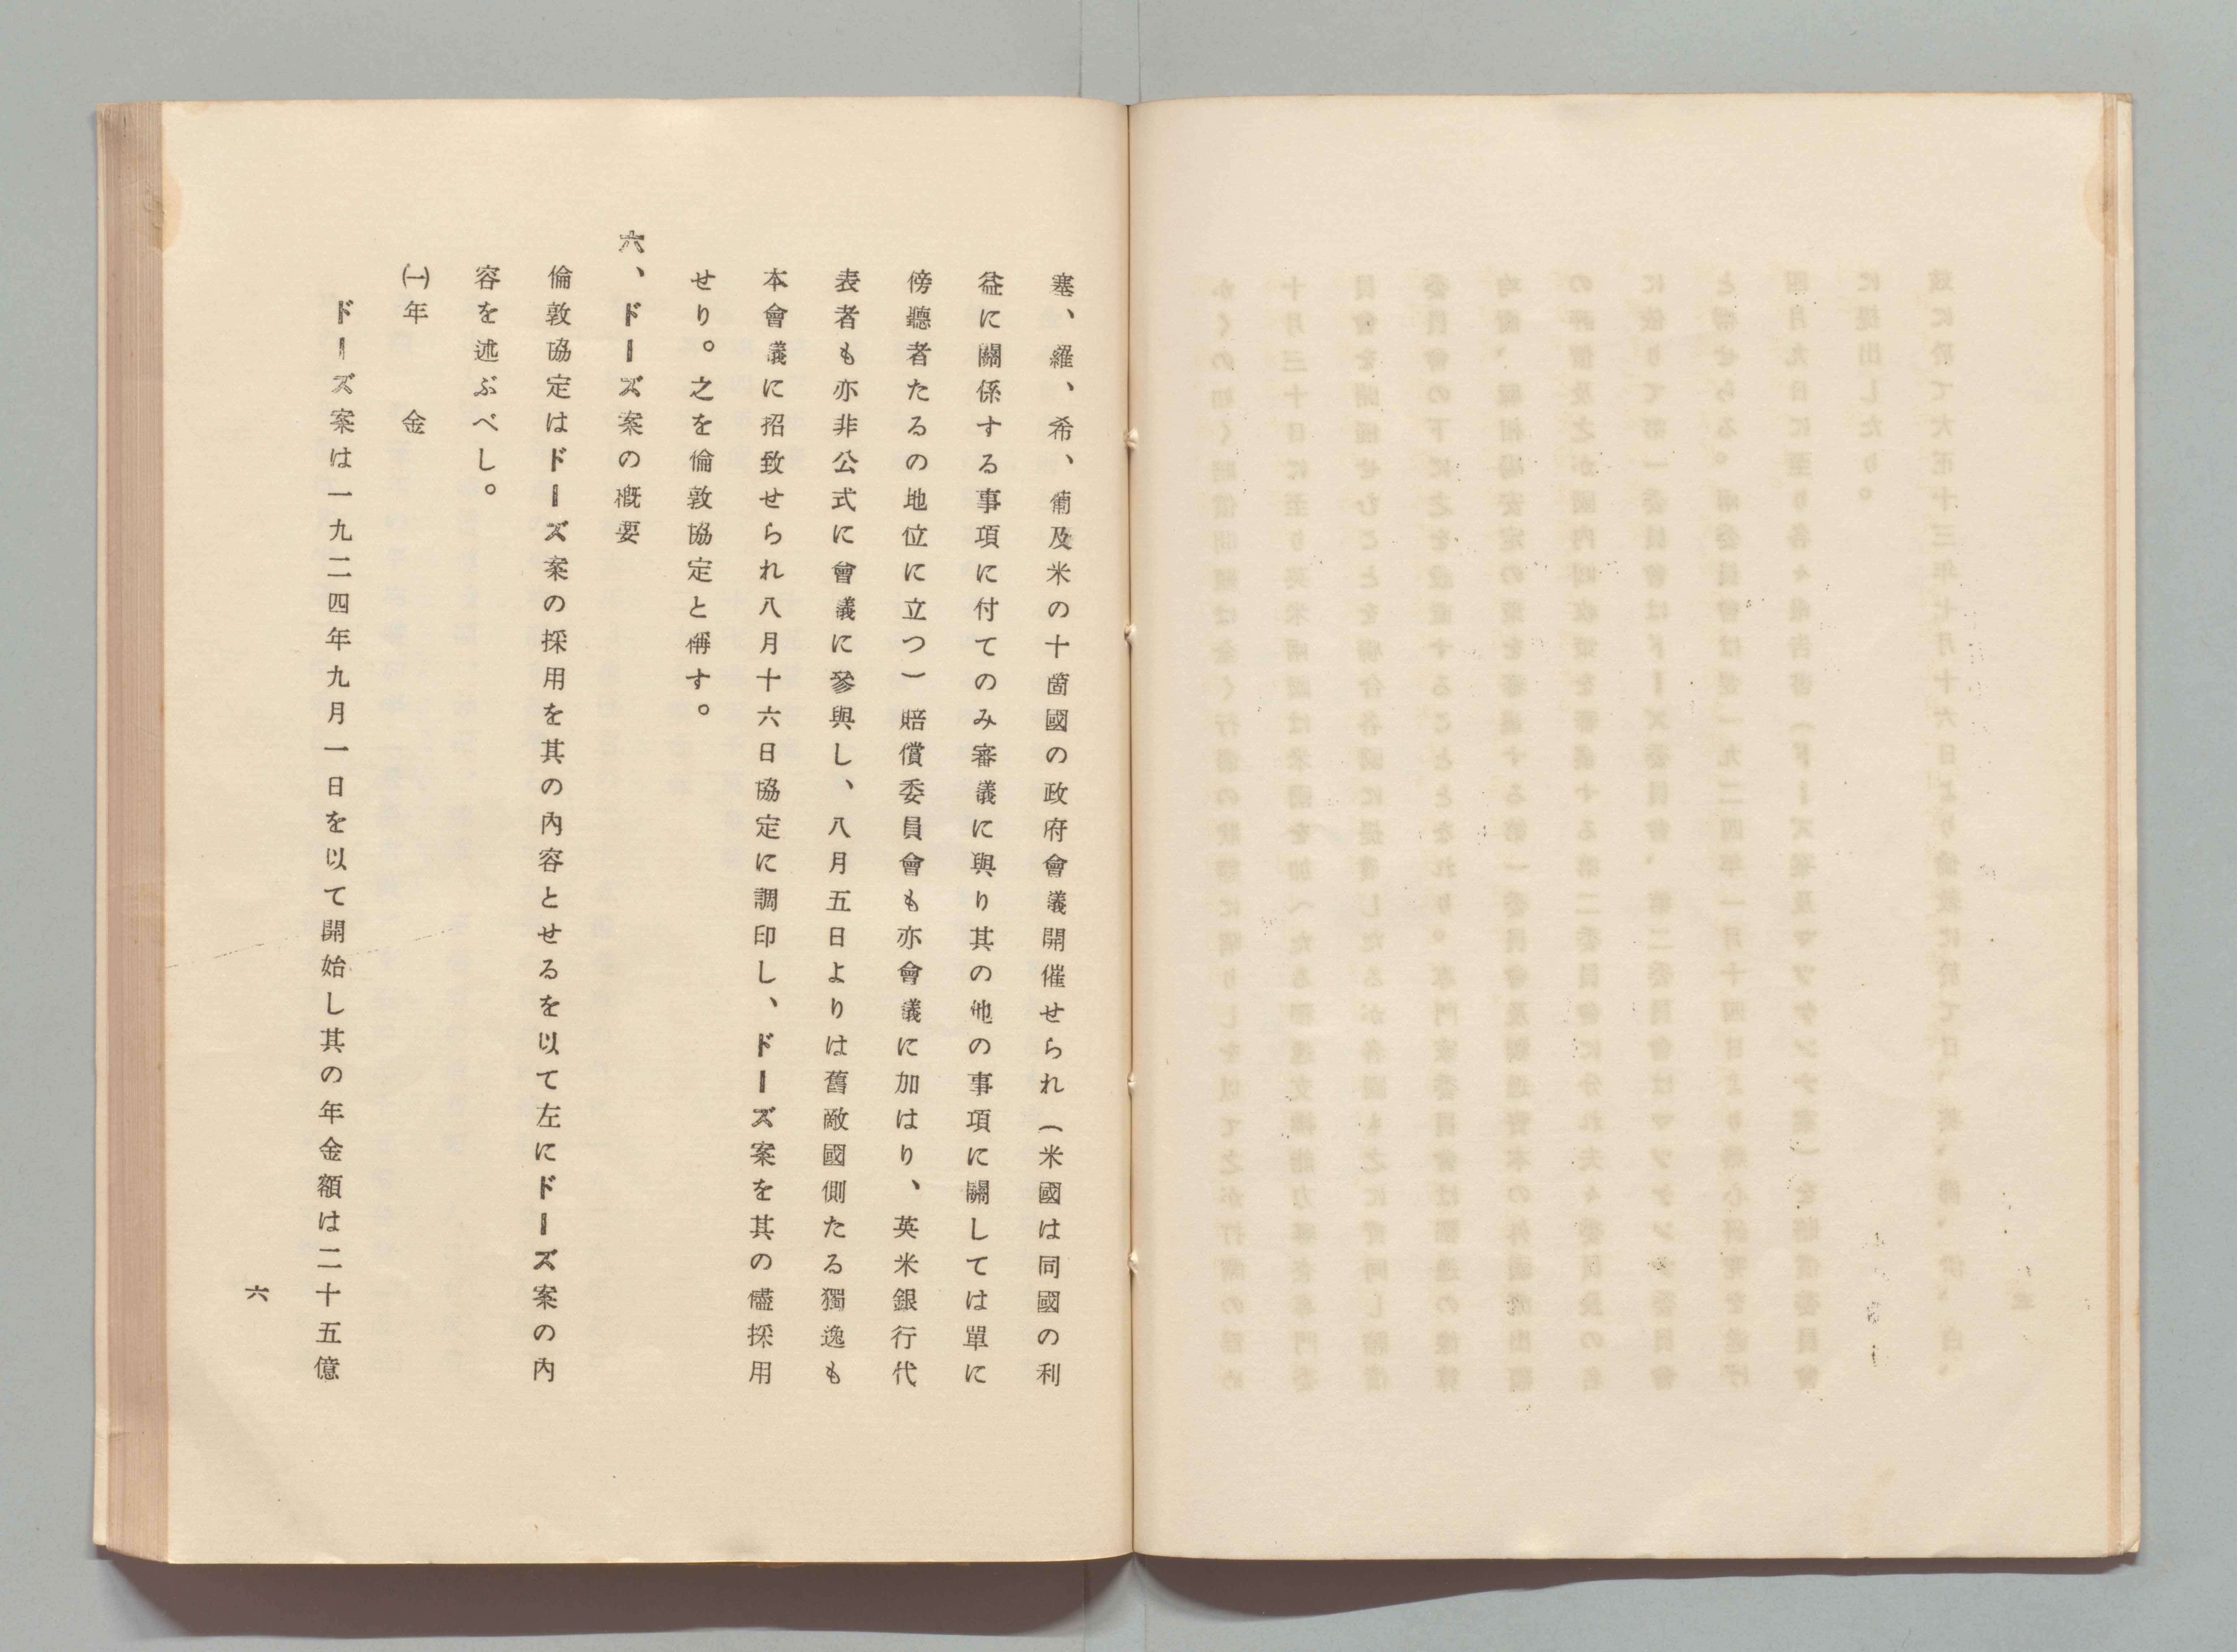 塞、羅、希、葡及米の十箇國の政府會議開催せられ（米國は同國の利
益に關係する事項に付てのみ審議に與り其の他の事項に關しては單に
傍聽者たるの地位に立つ）賠償委員會も亦會議に加はり、英米銀行代
表者も亦非公式に會議に參與し、八月五日よりは舊敵國側たる獨逸も
本會議に招致せられ八月十六日協定に調印し、ドーズ案を其の儘採用
せり。之を倫敦協定と稱す。
六、ドーズ案の概要
倫敦協定はドーズ案の採用を其の內容とせるを以て左にドーズ案の內
容を述ぶべし。
㈠年　　金
ドーズ案は一九二四年九月一日を以て開始し其の年金額は二十五億
六